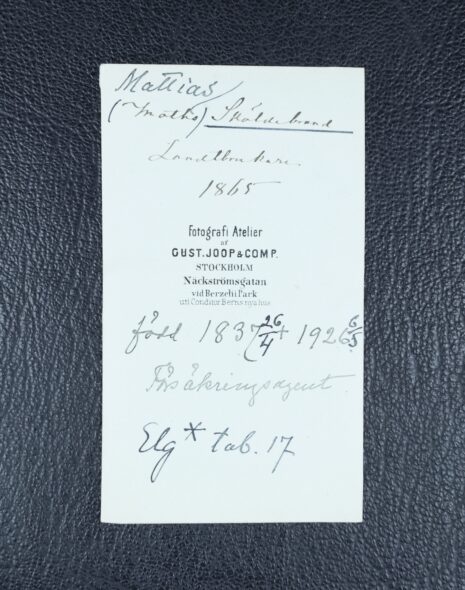 Mattias
(Maths) Sköldebrand
Landtbrukare.
1865
Fotografi Atelier
af
GUST. JOOP & COMP.
STOCKHOLM
Näckströmsgatan
vid Berzelii Park
uti Conditor Berns nya hus
född 1837 26/4 + 1926 6/5
Försäkringsagent
Elg * tab. 17